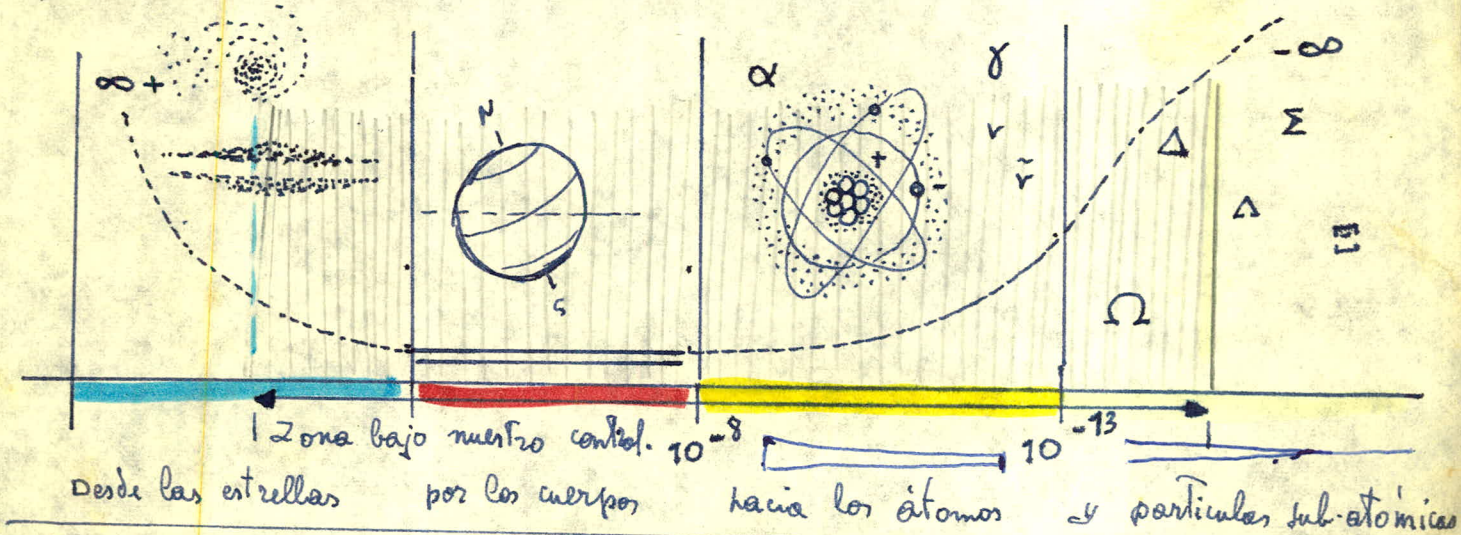 ∞+
N
S
α
+
-
γ
ν
ν̃
-∞
Δ
Σ
Λ
Ξ
Ω
Zona bajo nuestro control.
10⁻⁸
10⁻¹³
Desde las estrellas por los cuerpos hacia los átomos y partículas sub-atómicas